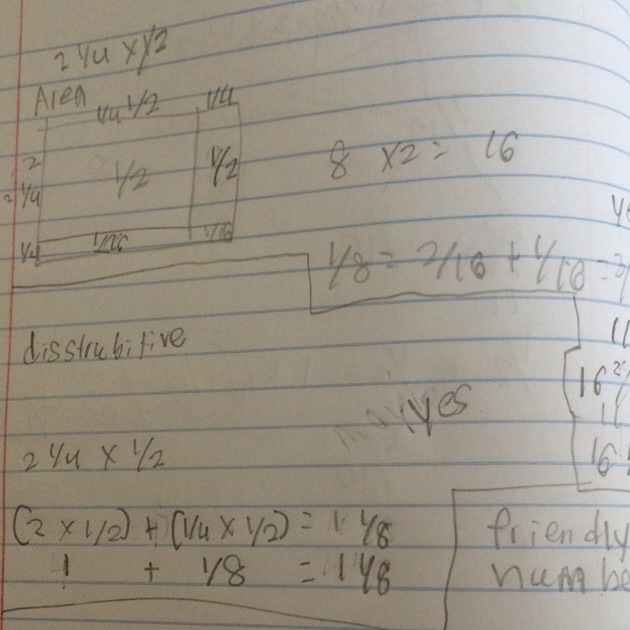 2 1/4 x 1/2
Area
1/4 1/2 1/4
2
1/2 1/2
2 1/4
8 x 2 = 16
1/4 1/16
1/8 = 2/16 + 1/16 =
disstrubitive
yes
16
2 1/4 x 1/2
16
(2 x 1/2) + (1/4 x 1/2) = 1 1/8
friendly
1 + 1/8 = 1 1/8
numbe